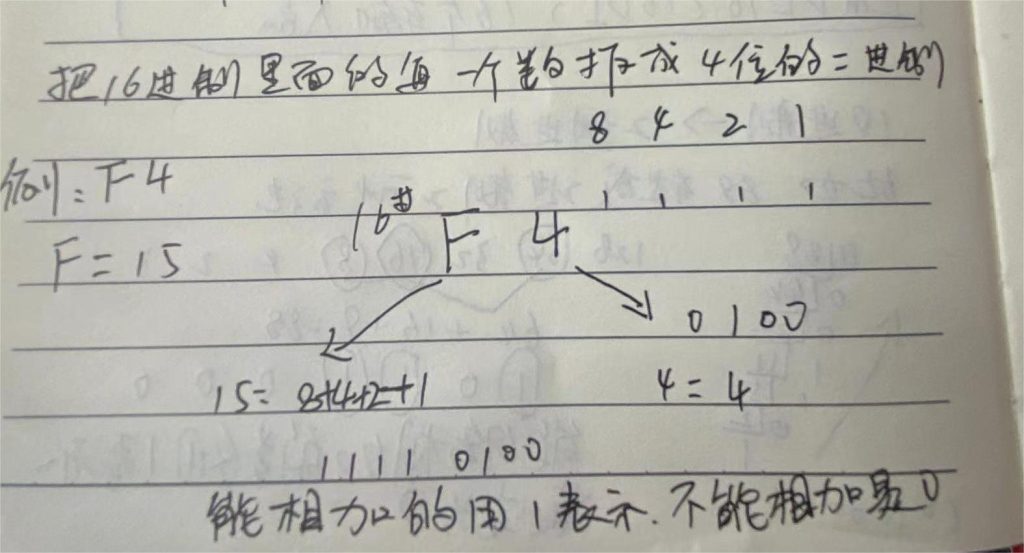 把16进制里面的每一个数拆成4位的二进制
8 4 2 1
例:F4
1 1 1 1
16进 F 4
F=15
0 1 0 0
15=8+4+2+1
4=4
1111 0100
能相加的用1表示.不能相加是0